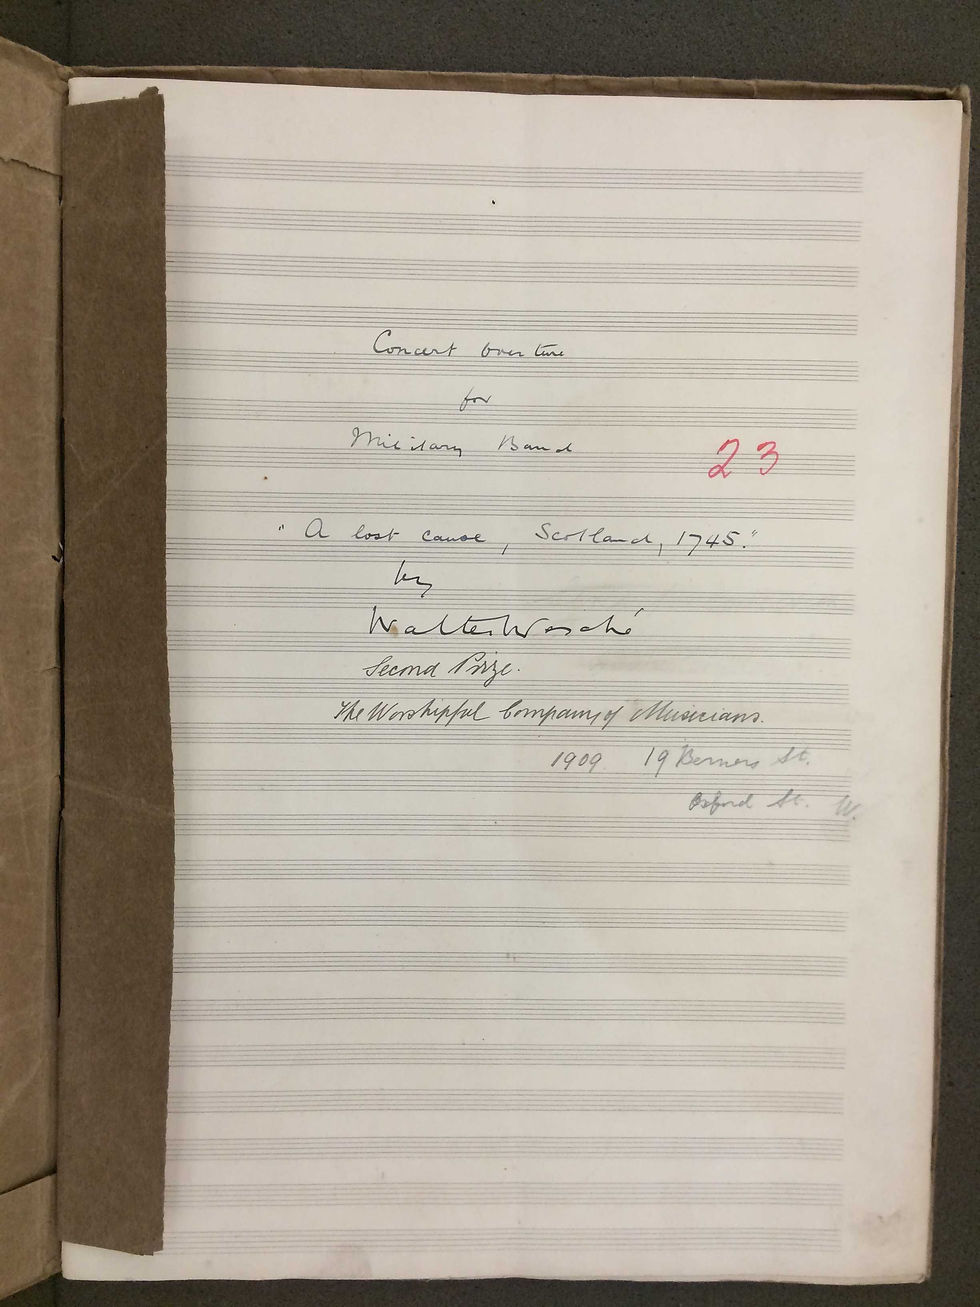 Concert Overture
for
Military Band
23
"A lost cause, Scotland, 1745."
by
Walter Wesché
Second Prize.
The Worshipful Company of Musicians.
1909 19 Berners St.
Oxford St. W.